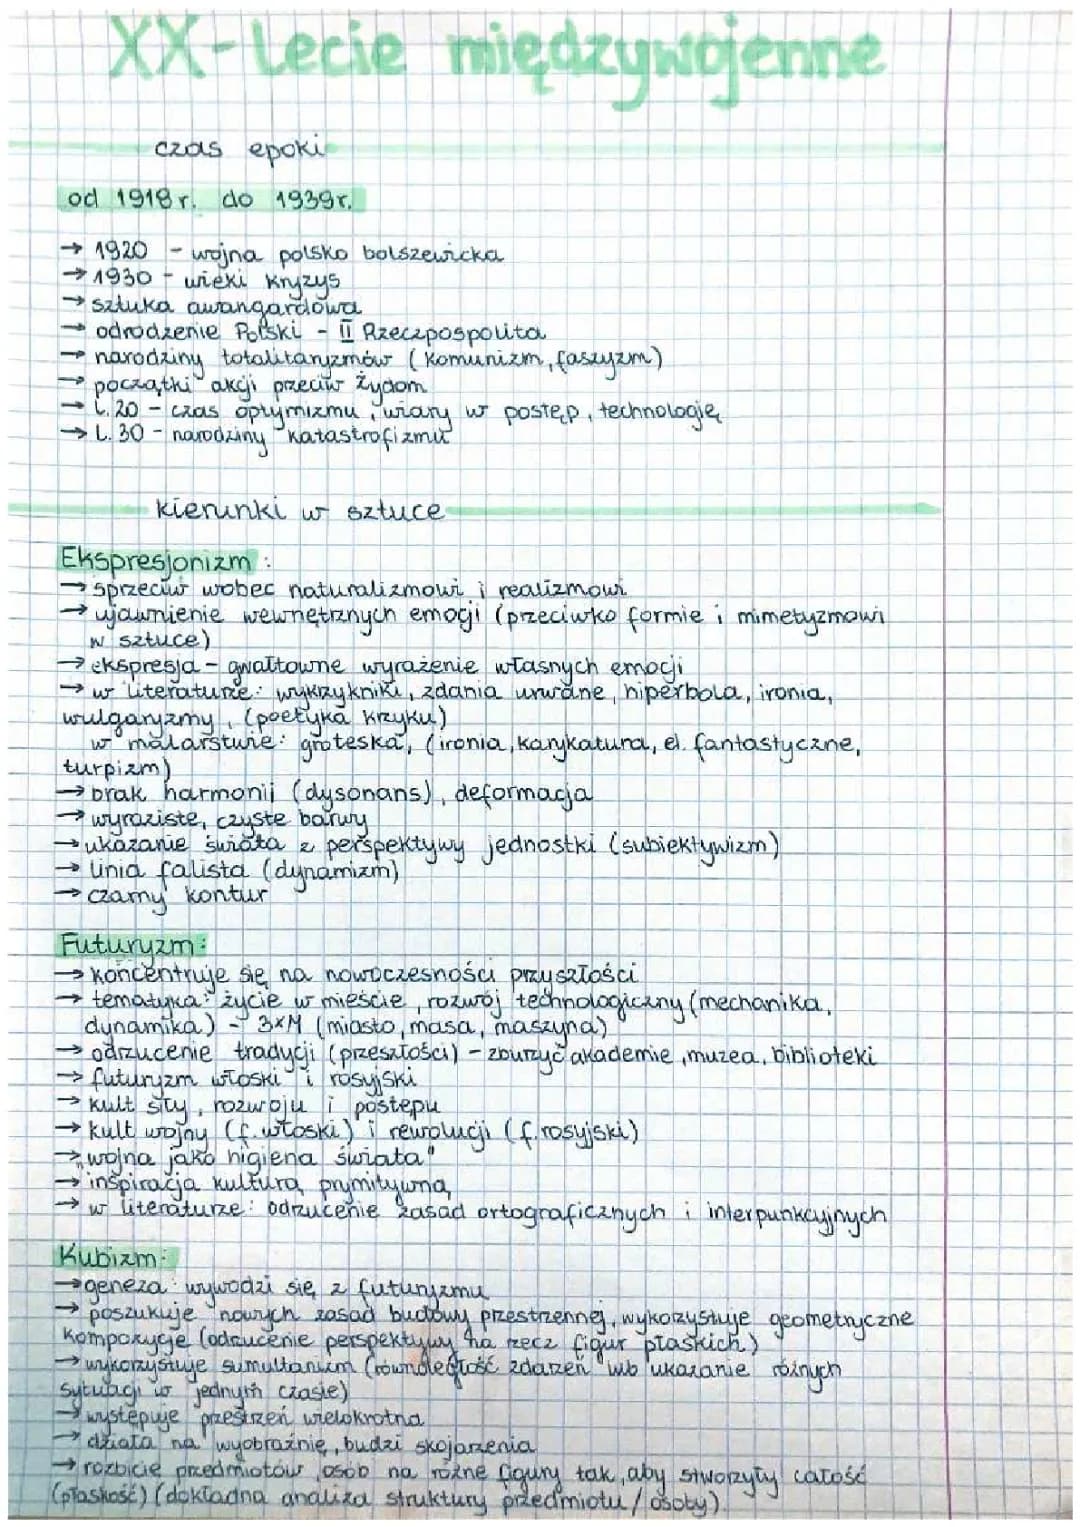 XX-Lecie międzywojenne
czas epoki
od 1918r. do 1939r.
→ 1920 - wojna polsko bolszewicka
→ 1930 - wieki kryzys
→ sztuka awangardowa
→ odrodzenie Polski - II Rzeczpospolita
→ narodziny totalitaryzmów (komunizm, faszyzm)
→ początki akcji przeciw Żydom
→ L. 20 - czas optymizmu, wiary w postęp, technologię
→ L. 30 - narodziny katastrofizmu
kierunki w sztuce
Ekspresjonizm:
→ sprzeciw wobec naturalizmowi i realizmowi
→ ujawnienie wewnętrznych emocji (przeciwko formie i mimetyzmowi
w sztuce)
→ ekspresja - gwałtowne wyrażenie własnych emocji
→ w literaturze: wykrzykniki, zdania urwane, hiperbola, ironia,
wulgaryzmy, (poetyka krzyku)
w malarstwie: groteska, (ironia, karykatura, el. fantastyczne,
turpizm)
→ brak harmonii (dysonans), deformacja
→ wyraziste, czyste barwy
→ ukazanie świata z perspektywy jednostki (subiektywizm)
→ linia falista (dynamizm)
→ czarny kontur
Futuryzm:
→ koncentruje się na nowoczesności przyszłości
→ tematyka: życie w mieście, rozwój technologiczny (mechanika,
dynamika) - 3xM (miasto, masa, maszyna)
→ odrzucenie tradycji (przeszłości) - zburzyć akademie, muzea, biblioteki
→ futuryzm włoski i rosyjski
→ kult siły, rozwoju i postępu
→ kult wojny (f. włoski) i rewolucji (f. rosyjski)
→ „wojna jako higiena świata"
→ inspiracja kulturą prymitywną
→ w literaturze: odrzucenie zasad ortograficznych i interpunkcyjnych
Kubizm:
→ geneza: wywodzi się z futuryzmu
→ poszukuje nowych zasad budowy przestrzennej, wykorzystuje geometryczne
kompozycje (odrzucenie perspektywy na rzecz figur płaskich)
→ wykorzystuje sumultanizm (równoległość zdarzeń lub ukazanie różnych
sytuacji w jednym czasie)
→ występuje przestrzeń wielokrotna
→ działa na wyobraźnię, budzi skojarzenia
→ rozbicie przedmiotów, osób na różne figury tak, aby stworzyły całość
(płaskość) (dokładna analiza struktury przedmiotu / osoby).